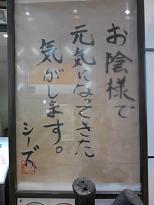 お陰様で
元気になってきた
気がします。
シズ